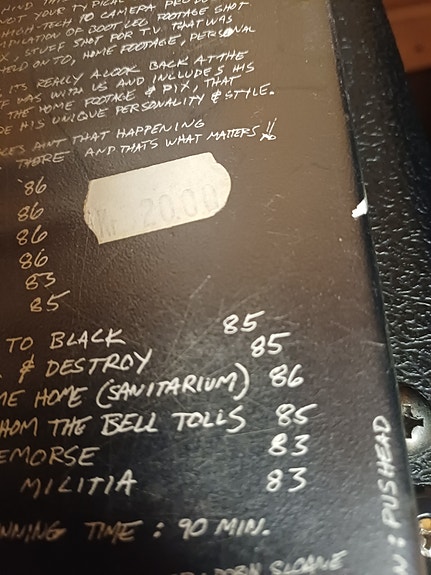 NOT YOUR TYPICAL
HIGH TECH 10 CAMERA
OF BOOT LEG FOOTAGE SHOT
, STUFF SHOT FOR T.V. THAT WAS
HELD ON TO, HOME FOOTAGE, PERSONAL
ITS REALLY A LOOK BACK AT THE
WAS WITH US AND INCLUDES HIS
THE HOME FOOTAGE & PIX, THAT
HIS UNIQUE PERSONALITY & STYLE.
AINT THAT HAPPENING
THERE AND THATS WHAT MATTERS!!
'86
86
86
86
83
85
Kr 20.00
TO BLACK 85
& DESTROY 85
ME HOME (SANITARIUM) 86
HOM THE BELL TOLLS 85
EMORSE 83
MILITIA 83
NNING TIME : 90 MIN.
SLOANE
N : PUSHEAD